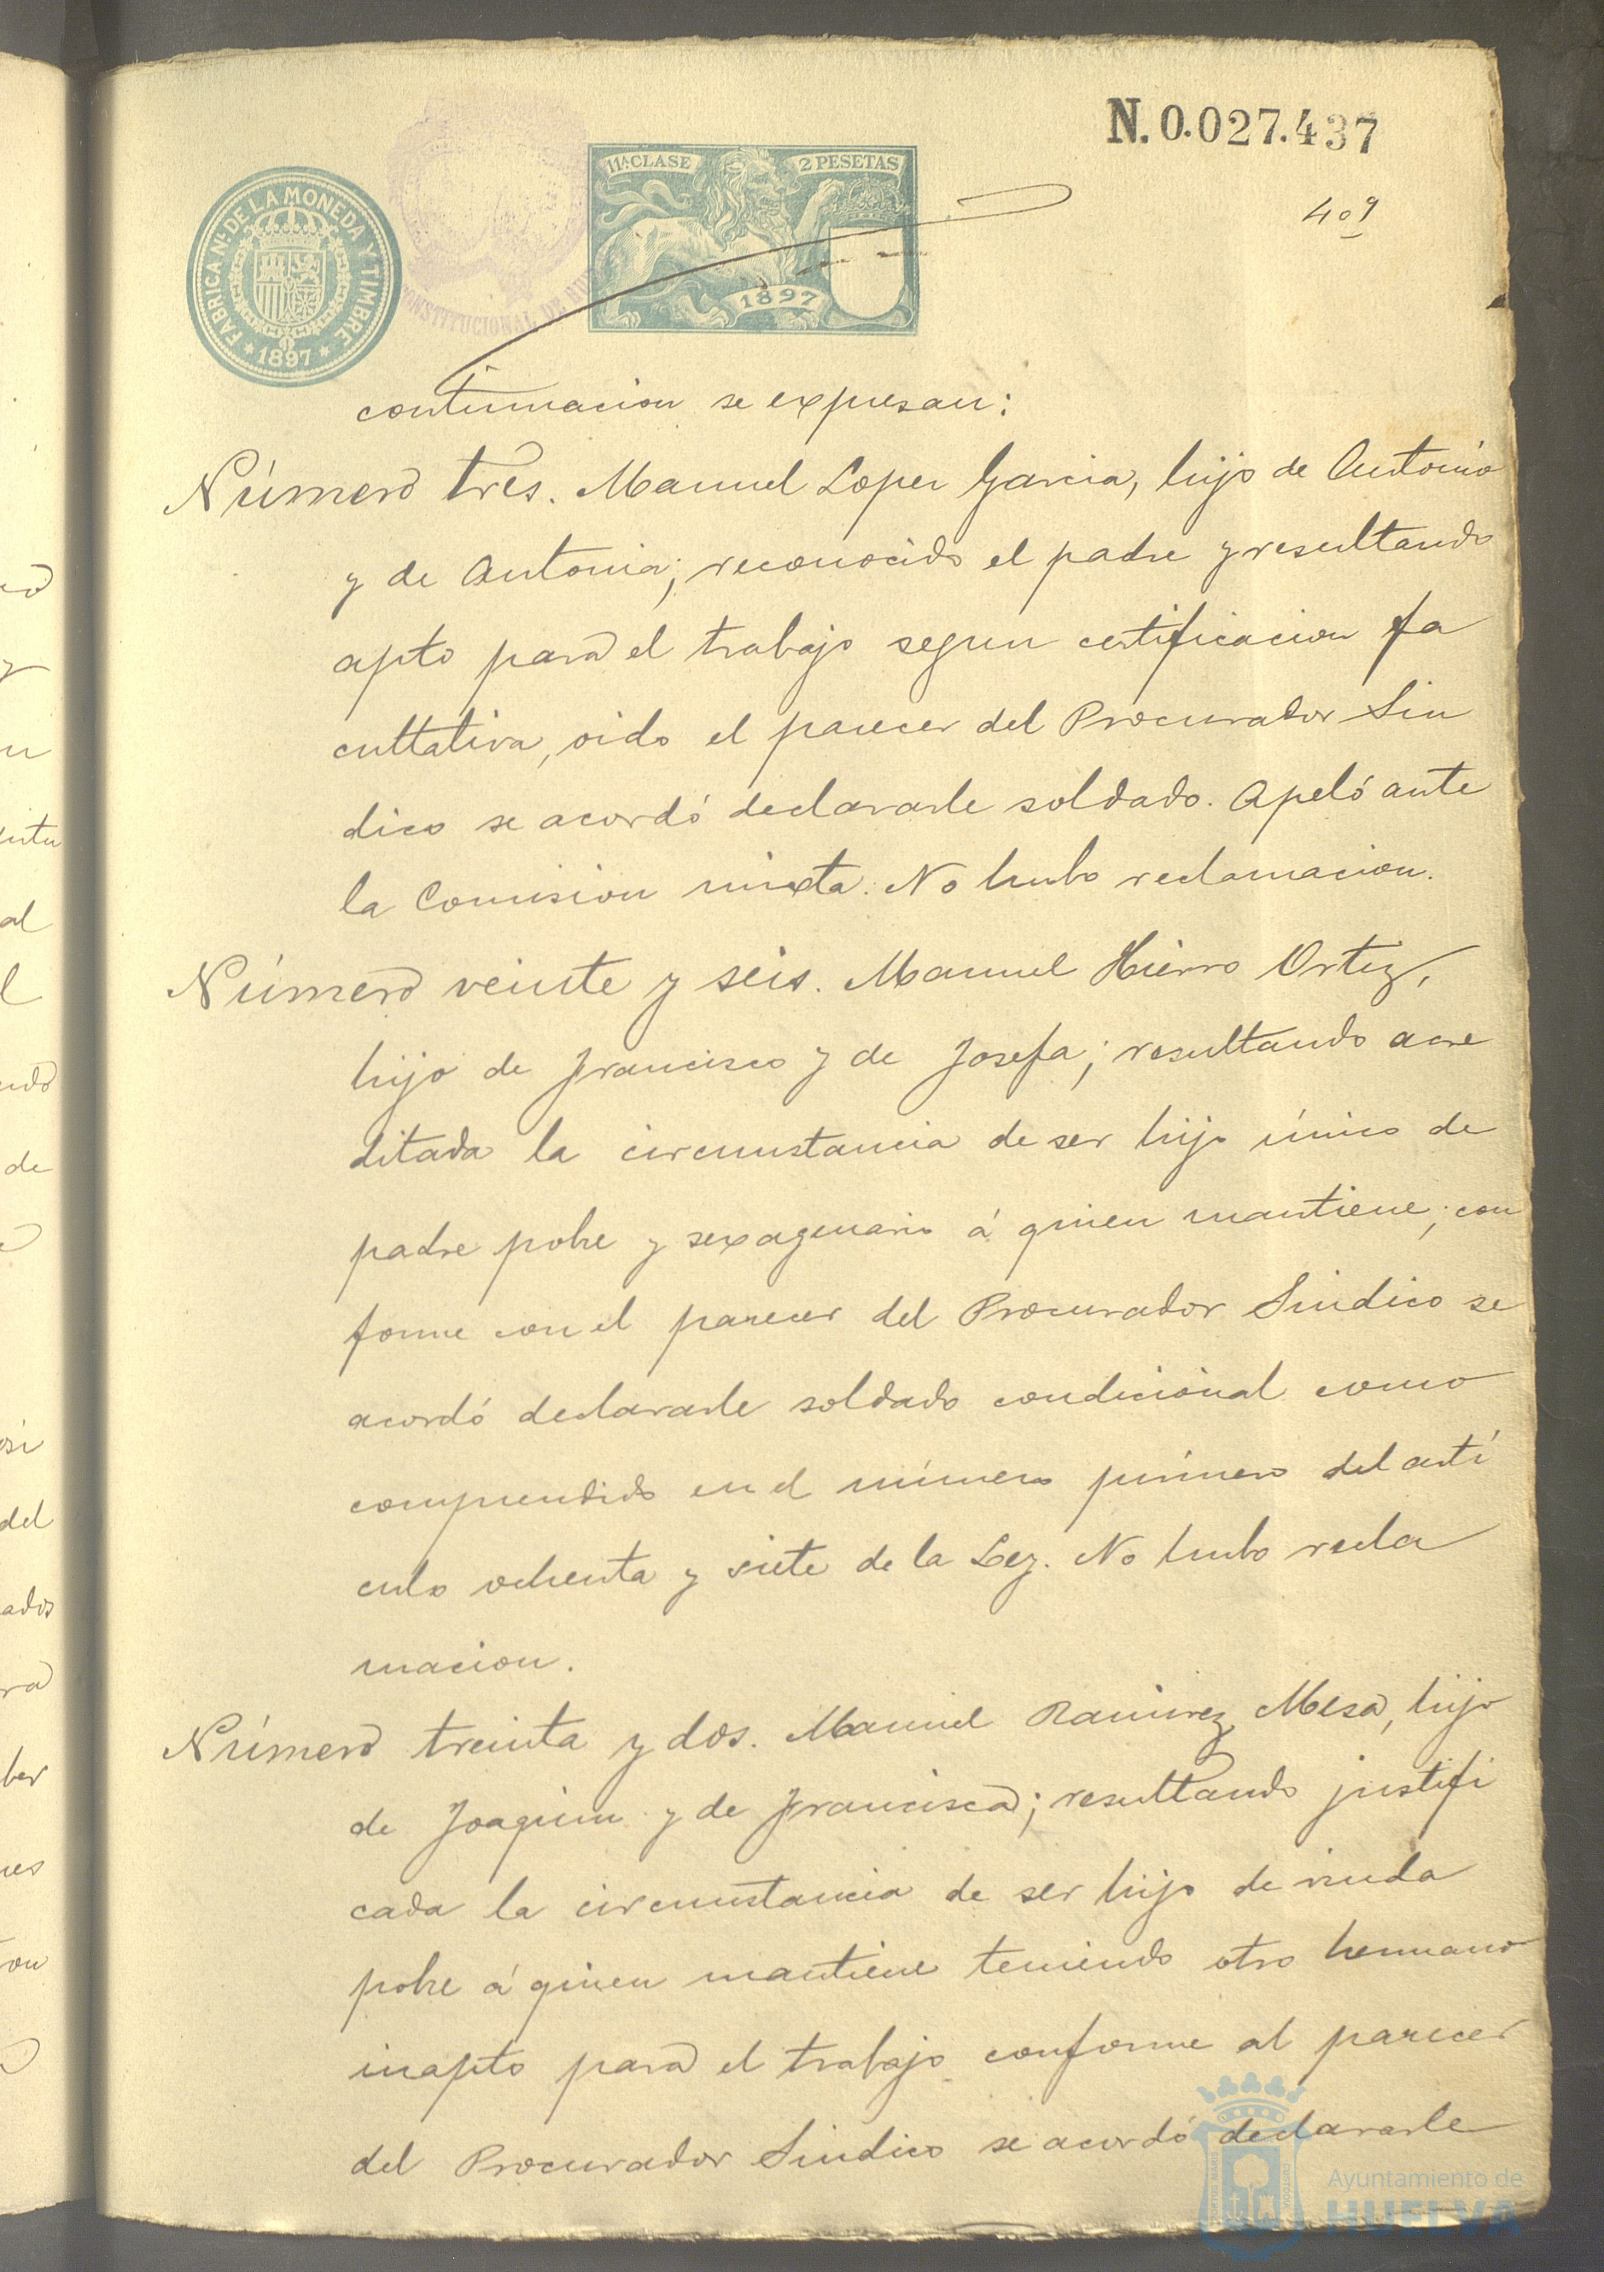 N. 0.027.437
11ª CLASE
2 PESETAS
1897
FABRICA Nl. DE LA MONEDA Y TIMBRE
* 1897 *
CONSTITUCIONAL DE HU
409
continuacion se expresan:
Número tres. Manuel Lopez Garcia, hijo de Antonio
y de Antonia; reconocido el padre y resultando
apto para el trabajo segun certificacion fa
cultativa, oido el parecer del Procurador Sin
dico se acordó declararle soldado. Apeló ante
la Comision mixta. No hubo reclamacion.
Número veinte y seis. Manuel Hierro Ortiz,
hijo de Francisco y de Josefa; resultando acre
ditada la circunstancia de ser hijo único de
padre pobre y sexagenario á quien mantiene; con
forme con el parecer del Procurador Sindico se
acordó declararle soldado condicional como
comprendido en el número primero del artí
culo ochenta y siete de la Ley. No hubo recla
macion.
Número treinta y dos. Manuel Ramirez Mesa, hijo
de Joaquin y de Francisca; resultando justifi
cada la circunstancia de ser hijo de viuda
pobre á quien mantiene teniendo otro hermano
inapto para el trabajo conforme al parecer
del Procurador Sindico se acordó declararle
Ayuntamiento de
HUELVA